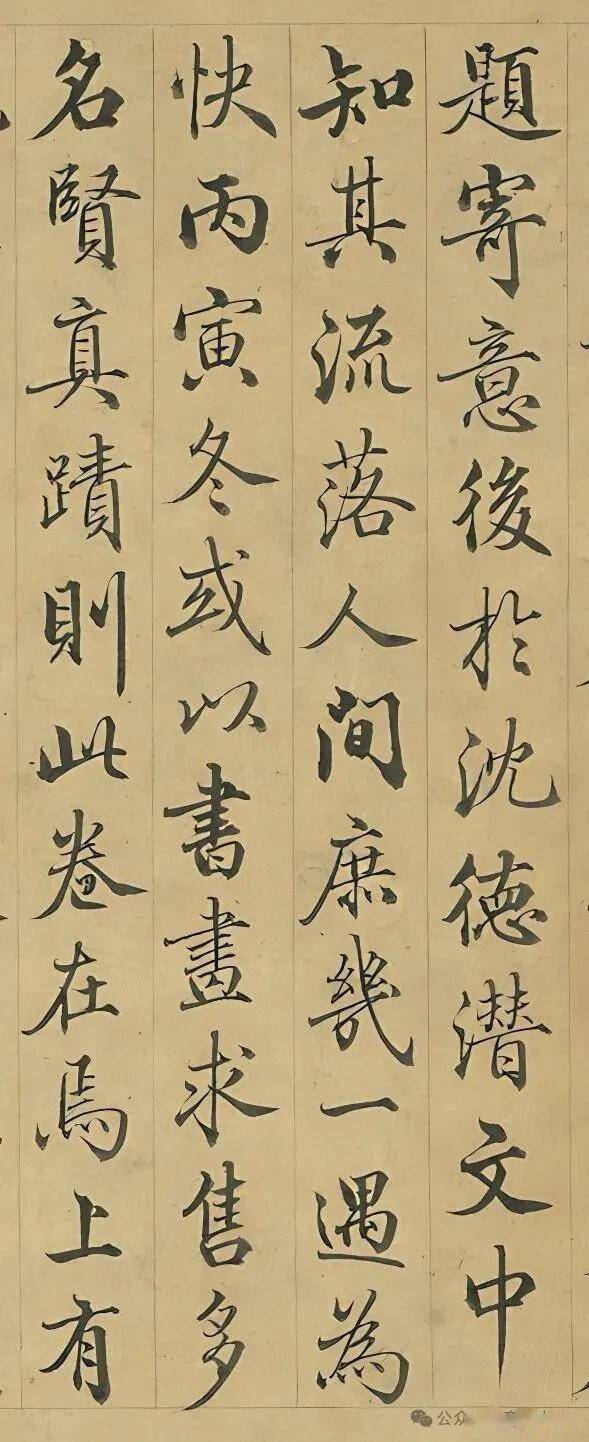 題寄意後於沈德潛文中
知其流落人間庶幾一遇為
快丙寅冬或以書畫求售多
名賢真蹟則此卷在焉上有
公众